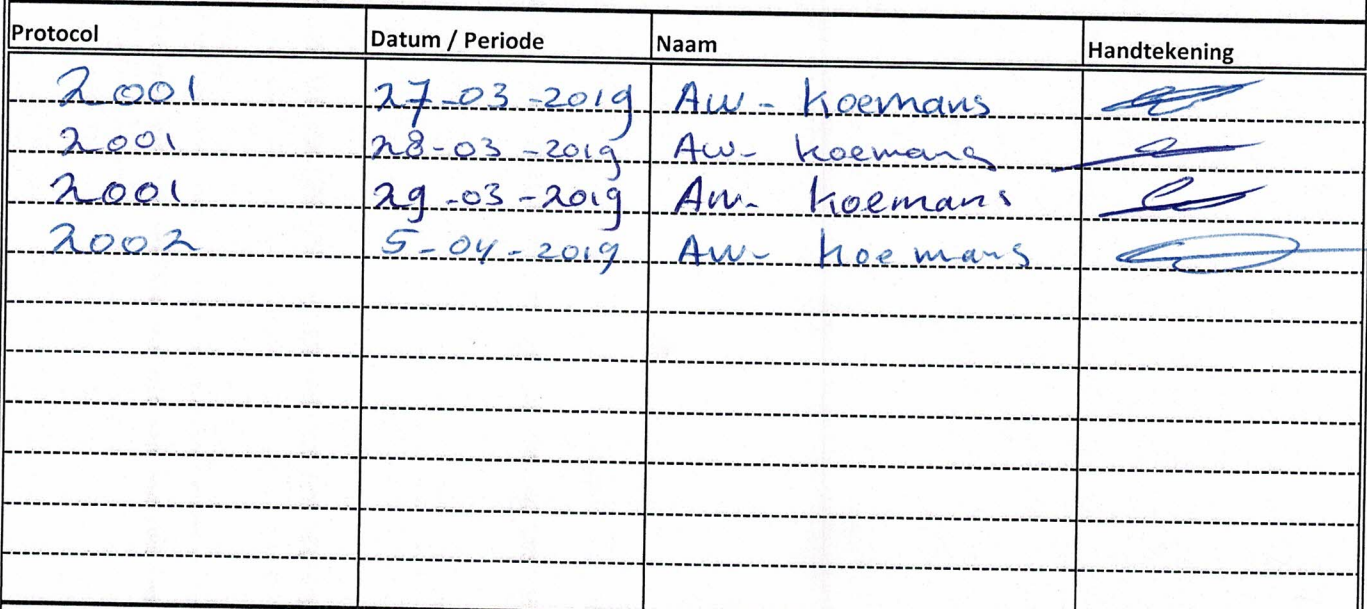 Protocol Datum / Periode Naam Handtekening
2001 27-03-2019 AW- Koemans
2001 28-03-2019 AW- Koemans
2001 29-03-2019 AW- Koemans
2002 5-04-2019 AW- Koemans